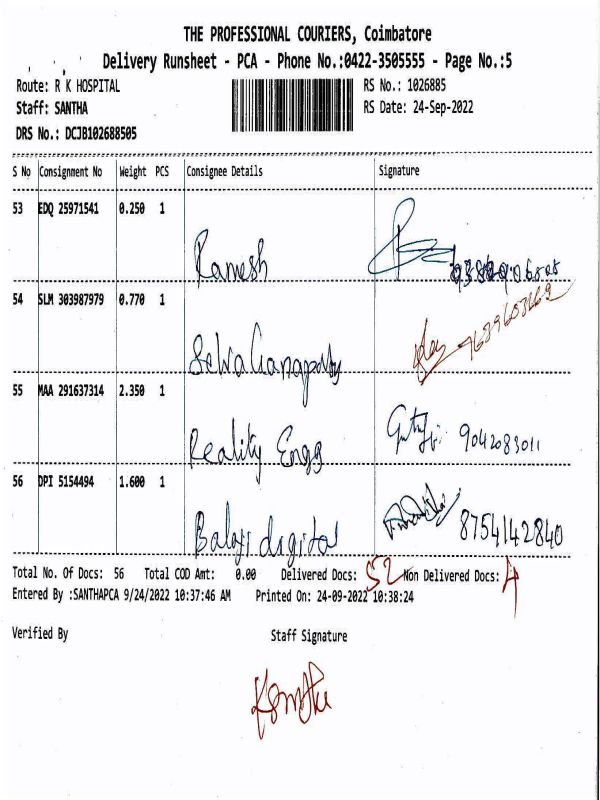 THE PROFESSIONAL COURIERS, Coimbatore
Delivery Runsheet - PCA - Phone No.:0422-3505555 - Page No.:5
Route: R K HOSPITAL RS No.: 1026885
Staff: SANTHA RS Date: 24-Sep-2022
DRS No.: DCJB102688505
S No Consignment No Weight PCS Consignee Details Signature
53 EDQ 25971541 0.250 1
Ramesh
54 SLM 303987979 0.770 1
Selva Ganapathy
55 MAA 291637314 2.350 1
Reality Engg 9042083011
56 DPI 5154494 1.600 1
Balaji digital 8754142840
Total No. Of Docs: 56 Total COD Amt: 0.00 Delivered Docs: 52 Non Delivered Docs: 4
Entered By :SANTHAPCA 9/24/2022 10:37:46 AM Printed On: 24-09-2022 10:38:24
Verified By Staff Signature